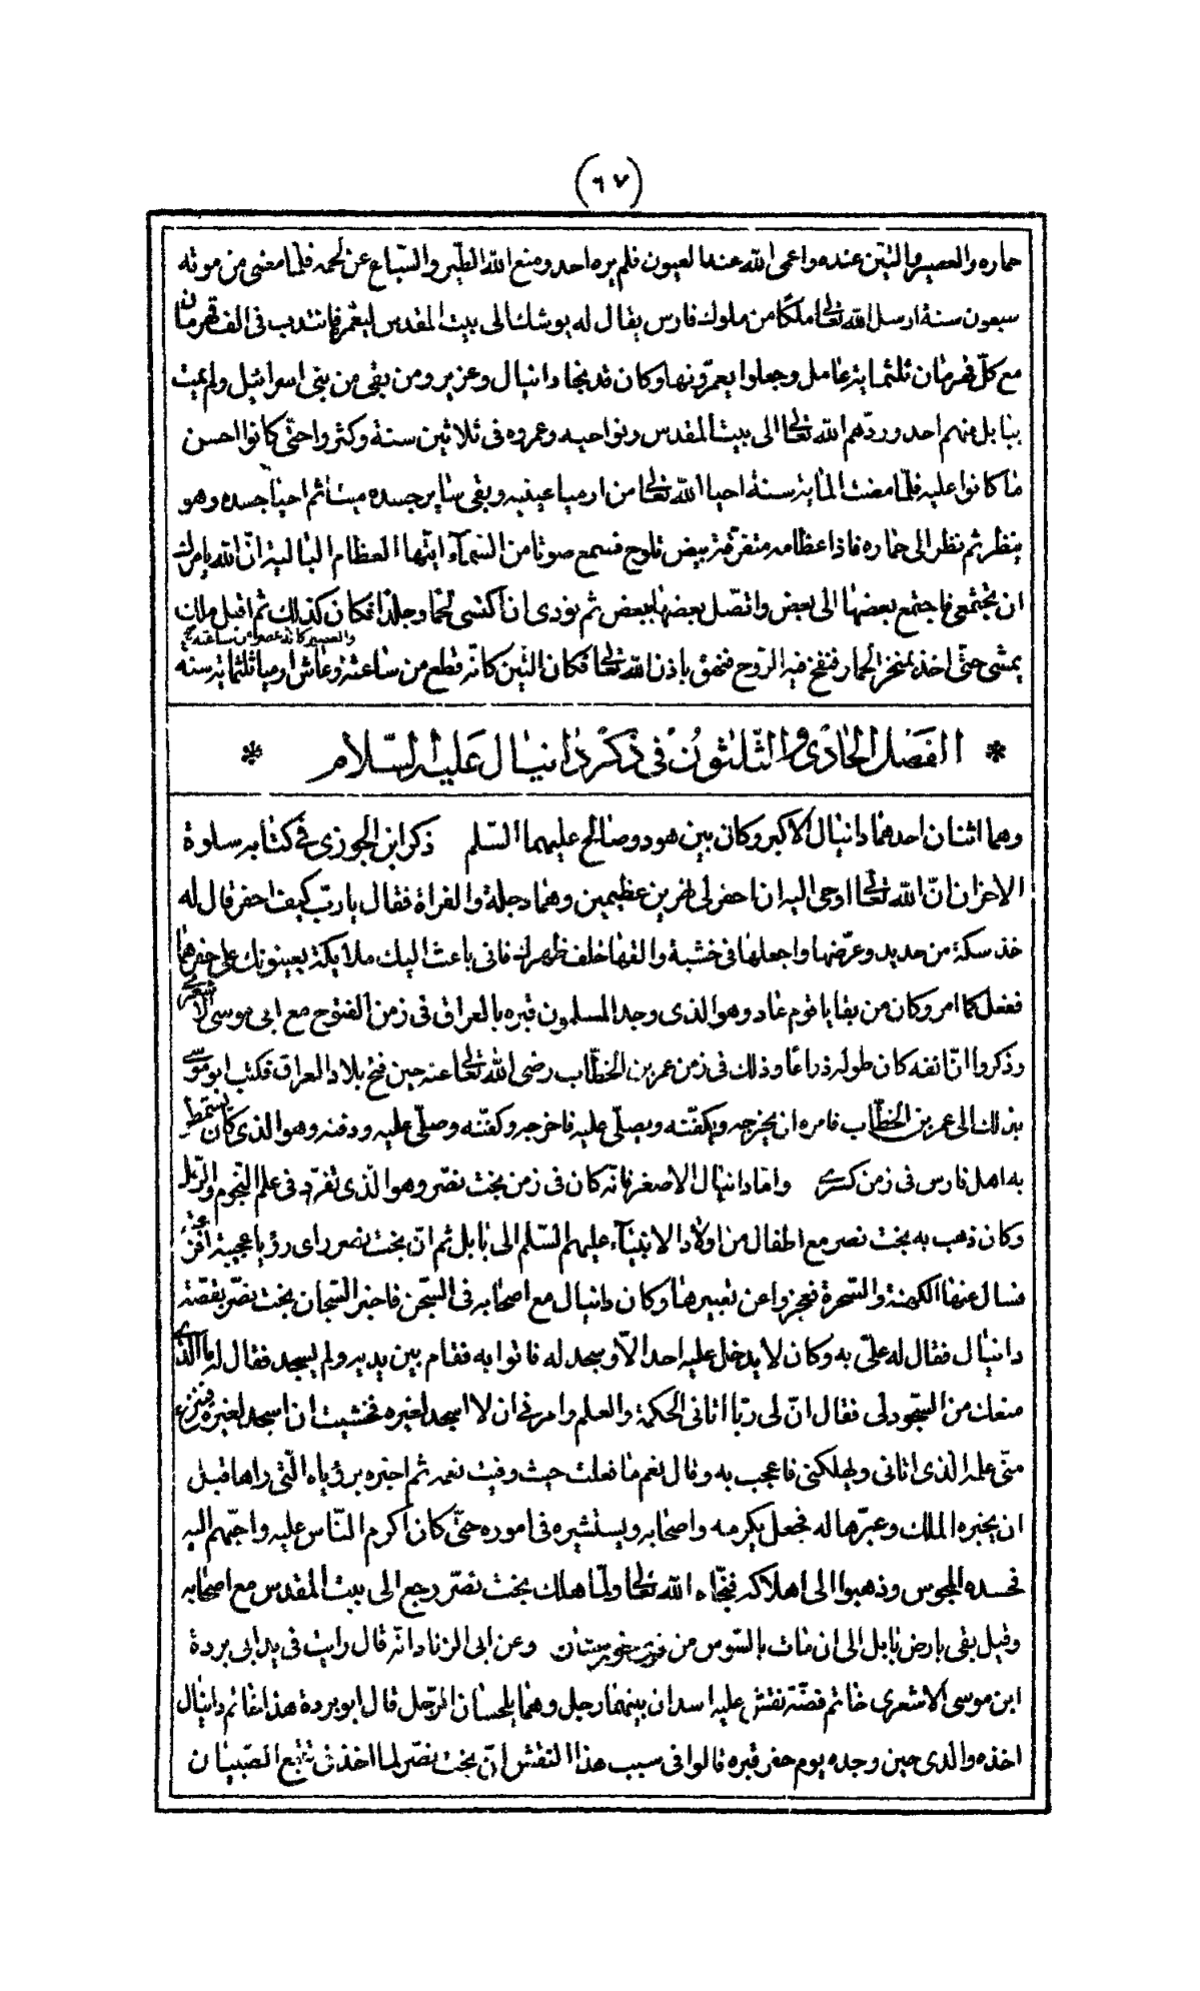 (٦٧)
حماره والعصير والتين عنده واعمى الله عنه العيون فلم يره احد ومنع الله الطير والسباع عن لحمه فلما مضى من موته
سبعون سنة ارسل الله تعالى ملكا من ملوك فارس يقال له يوشك الى بيت المقدس ليعمرها فانتدب فى الف قهرمان
مع كل قهرمان ثلثماية عامل وجعلوا يعمرونها وكان قد نجا دانيال وعزير ومن بقى من بنى اسرائيل ولم يمت
ببابل منهم احد وردهم الله تعالى الى بيت المقدس ونواحيه وعمروه فى ثلاثين سنة وكثروا حتى كانوا احسن
ما كانوا عليه فلما مضت الماية سنة احيا الله تعالى من ارميا عينيه وبقى ساير جسده ميتا ثم احيا جسده وهو
ينظر ثم نظر الى حماره فاذا عظامه متفرقة بيض تلوح فسمع صوتا من السمآء ايتها العظام البالية ان الله يامرك
ان تجتمعى فاجتمع بعضها الى بعض واتصل بعضها ببعض ثم نودى ان اكتسى لحما وجلدا فكان كذلك ثم اقبل ملك
والعصير كانه عصر من ساعته صح
يمشى حتى اخذ بمنخر الحمار فنفخ فيه الروح فنهق باذن الله تعالى فكان التين كانه قطع من ساعته وعاش ارميا ثلثماية سنة
* الفصل الحادى والثلثون فى ذكر دانيال عليه السلام *
وهما اثنان احدهما دانيال الاكبر وكان بين هود وصالح عليهما السلم ذكر ابن الجوزى فى كتابه سلوة
الاحزان ان الله تعالى اوحى اليه ان احفر لى نهرين عظيمين وهما دجلة والفراة فقال يا رب كيف احفر قال له
خذ سكة من حديد وعرضها واجعلها فى خشبة والقها خلف ظهرك فانى باعث اليك ملايكة يعينونك على حفرهما
ففعل كما امر وكان من بقايا قوم عاد وهو الذى وجد المسلمون قبره بالعراق فى زمن الفتوح مع ابى موسى الاشعرى
وذكروا ان انفه كان طوله ذراعا وذلك فى زمن عمر بن الخطاب رضى الله تعالى عنه حين فتح بلاد العراق فكتب ابو موسى
بذلك الى عمر بن الخطاب فامره ان يخرجه ويكفنه ويصلى عليه فاخرجه وكفنه وصلى عليه ودفنه وهو الذى كان يستمطر
به اهل فارس فى زمن كسرى واما دانيال الاصغر فانه كان فى زمن بخت نصر وهو الذى تفرد فى علم النجوم والرمل
وكان ذهب به بخت نصر مع اطفال من اولاد الانبيآء عليهم السلم الى بابل ثم ان بخت نصر راى رؤيا عجيبة افزعته
فسال عنها الكهنة والسحرة فعجزوا عن تعبيرها وكان دانيال مع اصحابه فى السجن فاخبر السجان بخت نصر بقصة
دانيال فقال له على به وكان لا يدخل عليه احد الا وسجد له فاتوا به فقام بين يديه ولم يسجد فقال له ما الذى
منعك من السجود لى فقال ان لى ربا اتانى الحكمة والعلم وامرنى ان لا اسجد لغيره فخشيت ان اسجد لغيره فينزع
منى علمه الذى اتانى ويهلكنى فاعجب به وقال نعم ما فعلت حيث وفيت بعهده ثم اخبره برؤياه التى راها قبل
ان يخبره الملك وعبرها له فجعل يكرمه واصحابه ويستشيره فى اموره حتى كان اكرم الناس عليه واحبهم اليه
فحسده المجوس وذهبوا الى اهلاكه فنجاه الله تعالى ولما هلك بخت نصر رجع الى بيت المقدس مع اصحابه
وقيل بقى بارض بابل الى ان مات بالسوس من خوزستان وعن ابى الزناد انه قال رايت فى يد ابى بردة
ابن موسى الاشعرى خاتم فضة نقش عليه اسدان بينهما رجل وهما يلحسان الرجل قال ابو بردة هذا خاتم دانيال
اخذه والدى حين وجده يوم حفر قبره قالوا فى سبب هذا النقش ان بخت نصر لما اخذ فى تتبع الصبيان